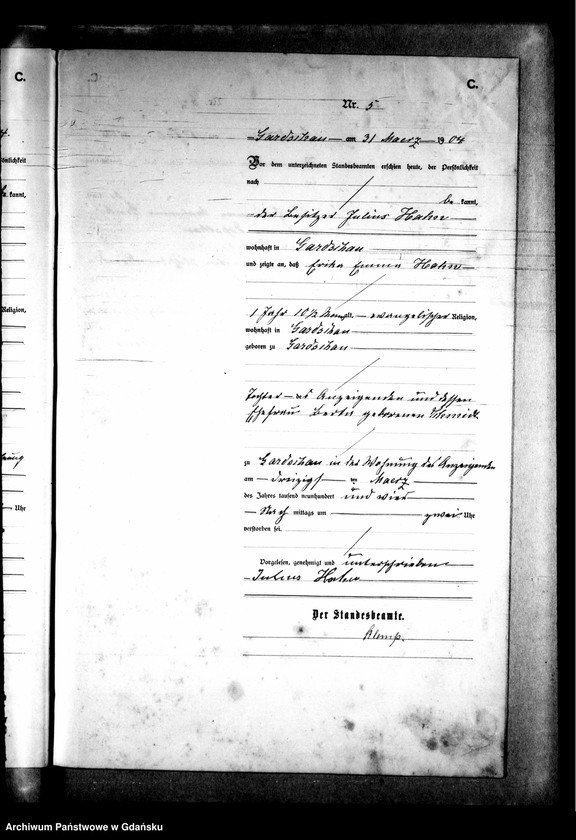 C.
C.
Nr. 5
Gardschau am 31 Maerz 1904
Vor dem unterzeichneten Standesbeamten erschien heute, der Persönlichkeit
nach
be kannt,
der Besitzer Julius Hahn
wohnhaft in Gardschau
und zeigte an, daß Erika Emma Hahn
1 Jahr 10½ Mon alt, evangelischer Religion,
wohnhaft in Gardschau
geboren zu Gardschau
Tochter des Anzeigenden und dessen
Ehefrau Berta geborenen Schmidt
zu Gardschau in der Wohnung des Anzeigenden
am dreizigst en Maerz
des Jahres tausend neunhundert und vier
Nach mittags um zwei Uhr
verstorben sei.
Vorgelesen, genehmigt und unterschrieben
Julius Hahn
Der Standesbeamte.
kannt,
Religion,
Uhr
Archiwum Państwowe w Gdańsku